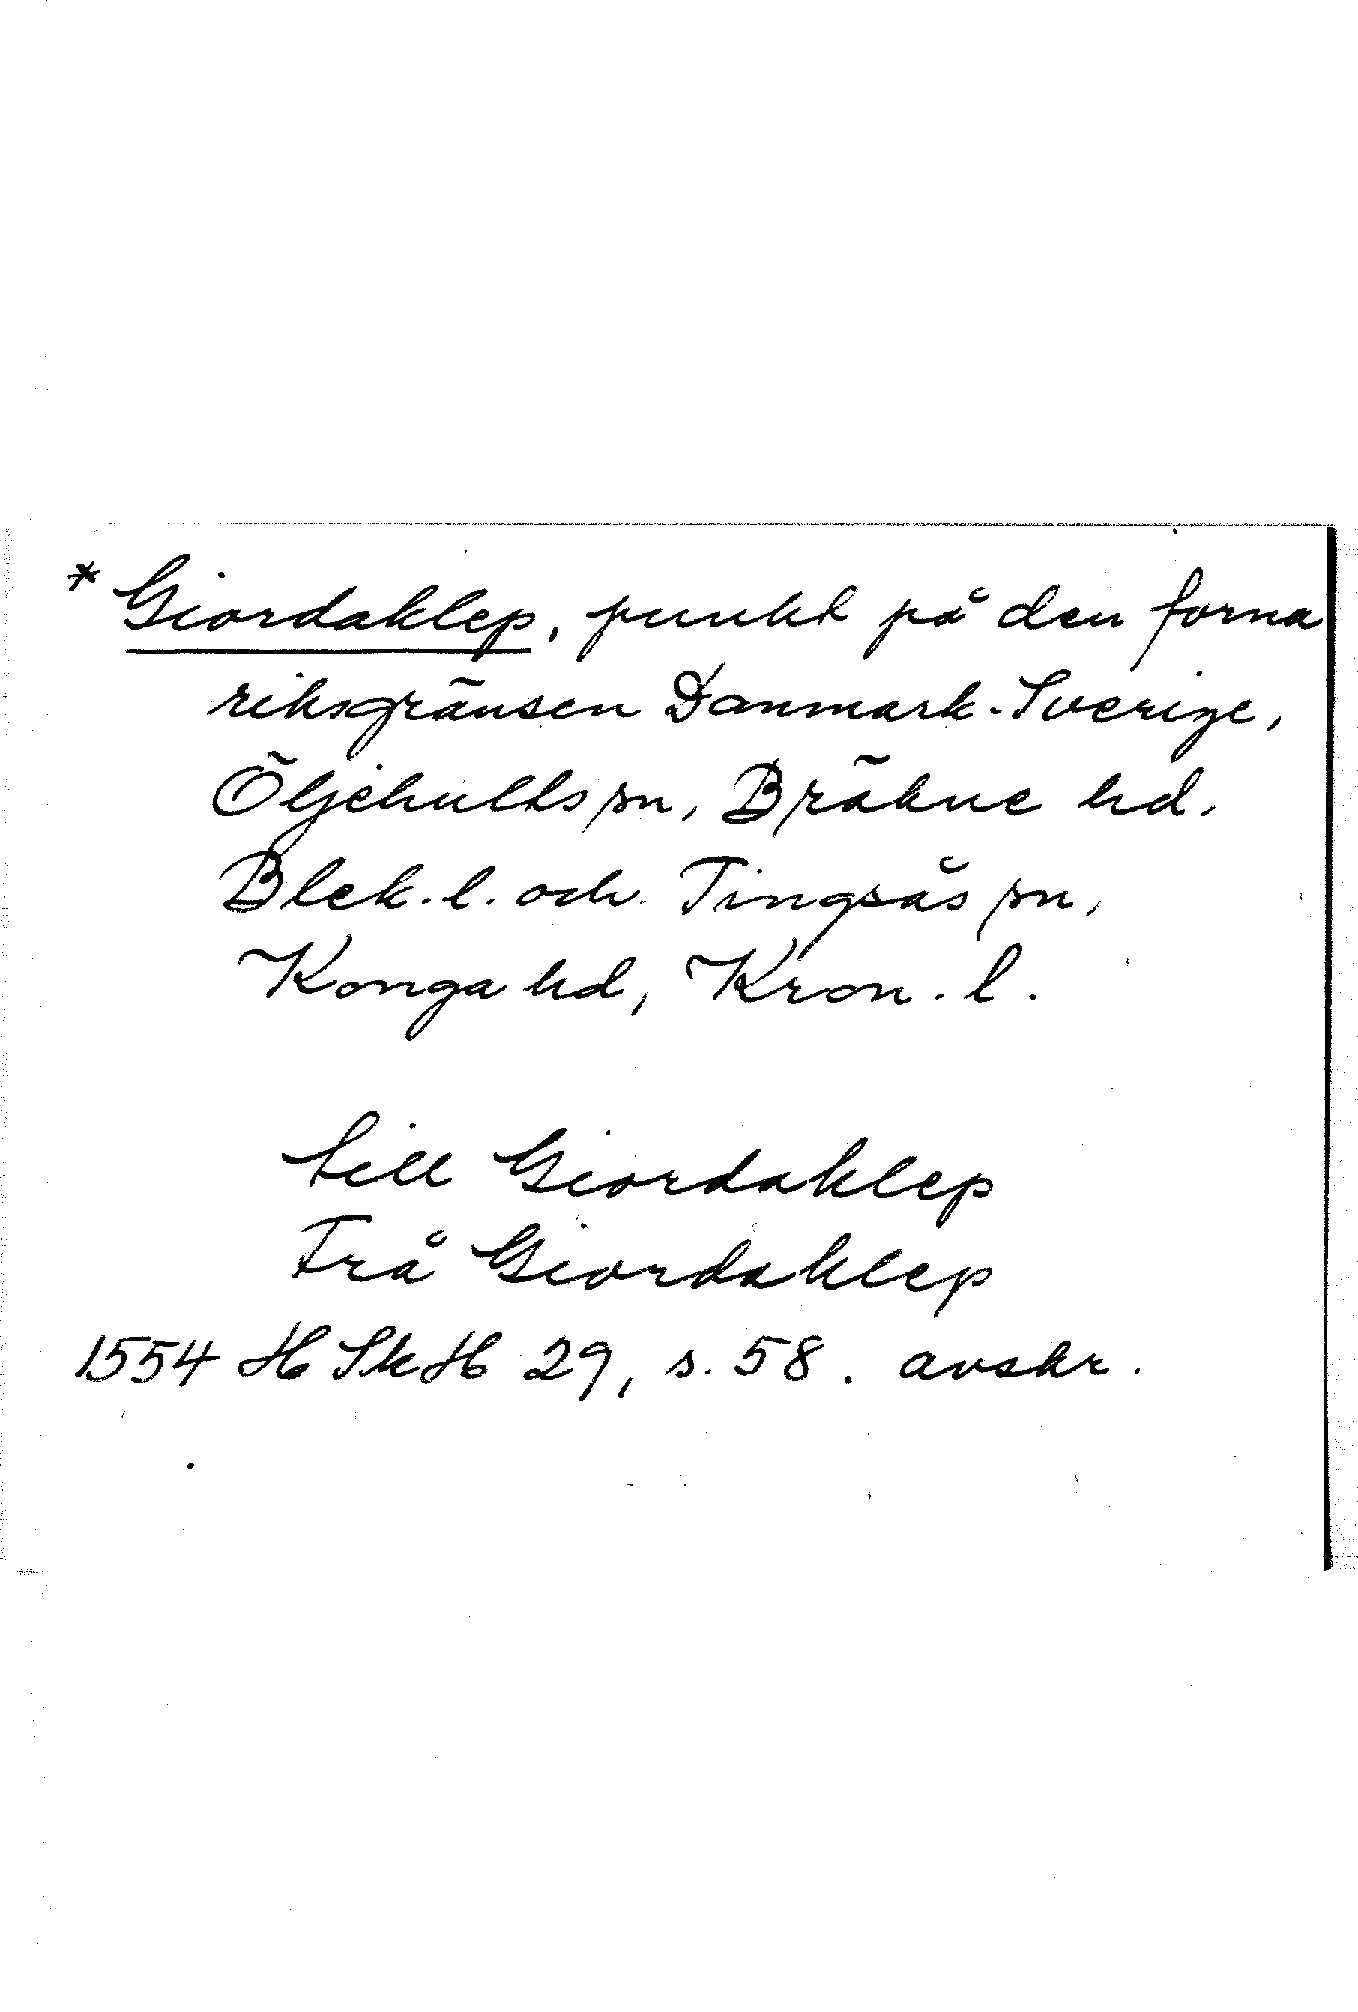 * Giordaklep, punkt på den forna
riksgränsen Danmark-Sverige,
Öljehults sn, Bräkne hd,
Blek. l. och Tingsås sn,
Konga hd, Kron. l.
till Giordaklep
Frå Giordaklep
1554 HSkH 29, s. 58. avskr.